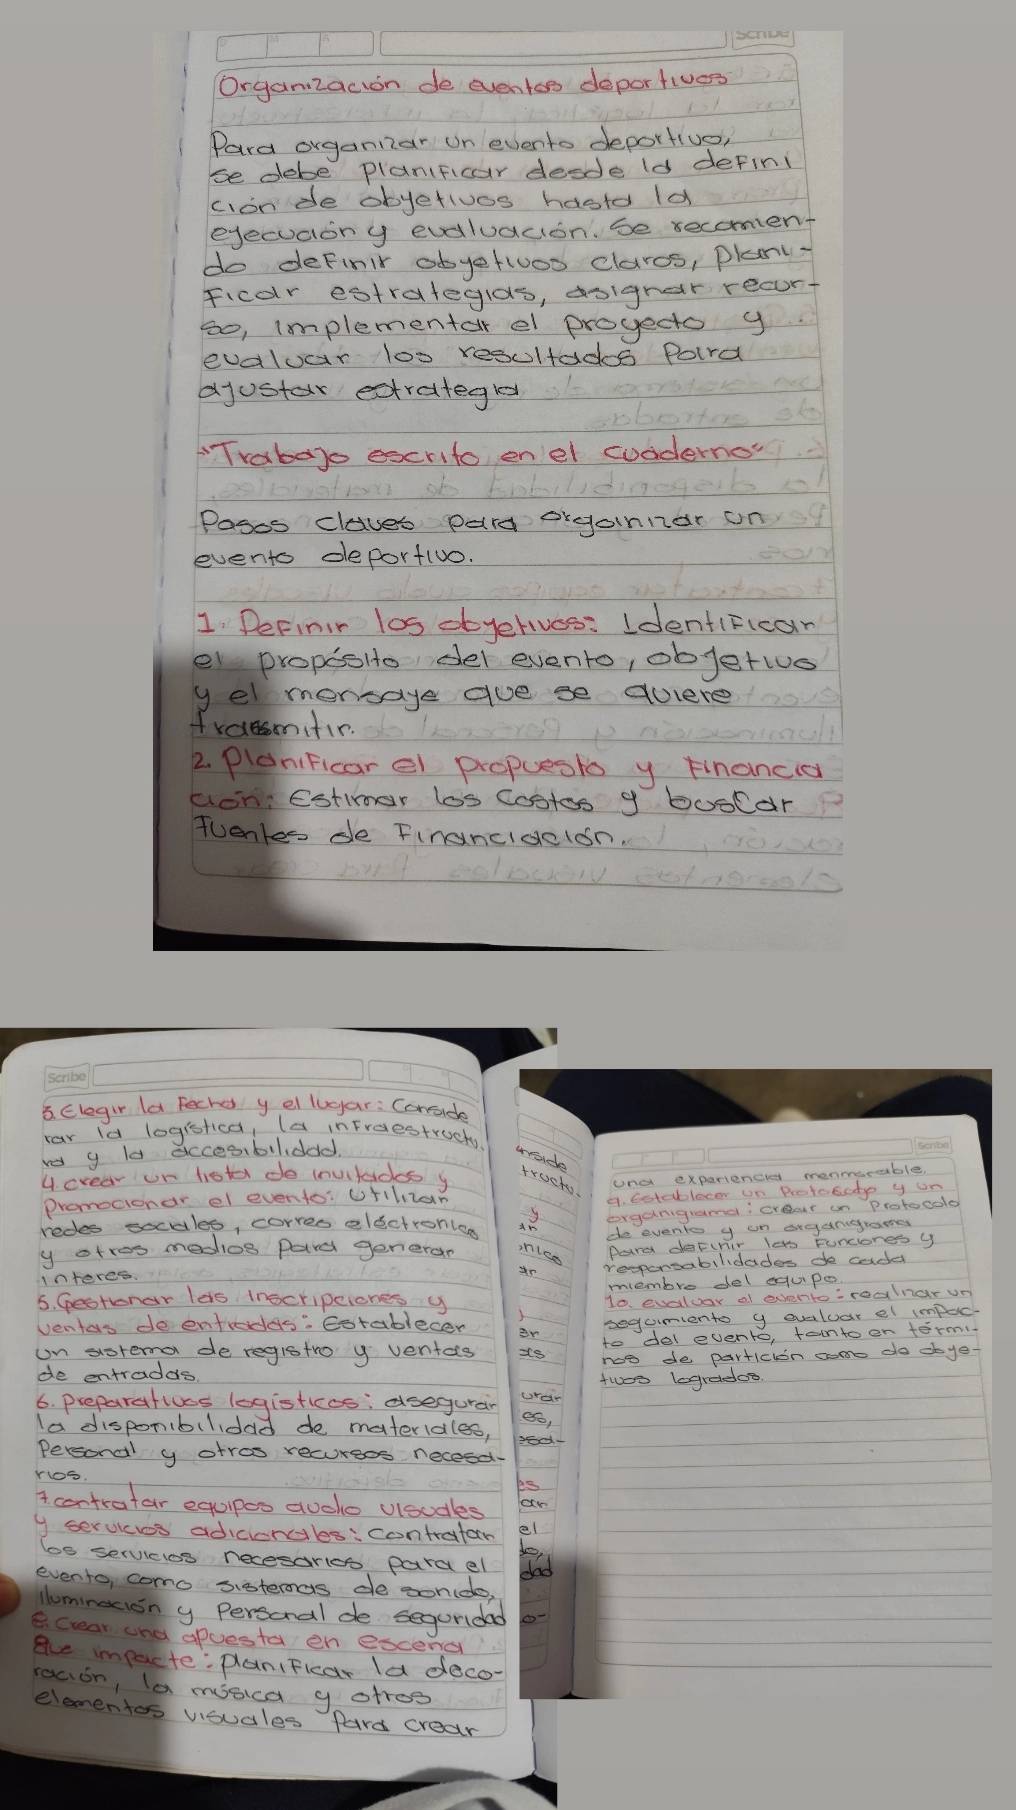 Scribe
Organización de eventos deportivos
Para organizar un evento deportivo,
se debe planificar desde la defini
ción de obyetivos hasta la
eyecución y evaluación. Se recomien-
do definir obyetivos claros, plani-
ficar estrategias, asignar recur-
so, implementar el proyecto y
evaluar los resultados para
ajustar estrategia
"Trabajo escrito en el cuaderno"
Pasos claves para organizar un
evento deportivo.
1. Definir los obyetivos: Identificar
el propósito del evento, objetivo
y el mensaye que se quiere
trasmitir.
2. Planificar el propuesto y financia
ción: Estimar los costos y buscar
fuentes de financiación.
Scribe
3. Elegir la fecha y el lugar: Conside
rar la logística, la infraestructu
ra y la accesibilidad.
4. crear un lista de invitados y
Promocionar el evento: Utilizar
redes sociales, correo eléctronico
y otros medios para generar
interes.
5. Gestionar las inscripciones y
ventas de entradas: Establecer
un sistema de registro y ventas
de entradas.
6. preparativos logísticos: asegurar
la disponibilidad de materiales,
Personal y otros recursos necesa-
rios.
7. contratar equipos audio visuales
y servicios adicionales: Contratar
los servicios necesarios para el
evento, como sistemas de sonido,
iluminación y Personal de seguridad
8. Crear una apuesta en escena
que impacte: planificar la deco-
ración, la música y otros
elementos visuales para crear
nside
tructu.
y
an
onico
ar
)
er
as
urar
es,
esa-
es
ar
el
do,
dad
o-
Scribe
una experiencia menmorable.
9. Establecer un Protocolo y un
organigrama: crear un Protocolo
de evento y un organigrama
para definir las funciones y
responsabilidades de cada
miembro del equipo.
10. evaluar el evento: realnar un
seguimiento y evaluar el impac-
to del evento, tanto en térmi-
nos de partición como de obye-
tivos logrados.